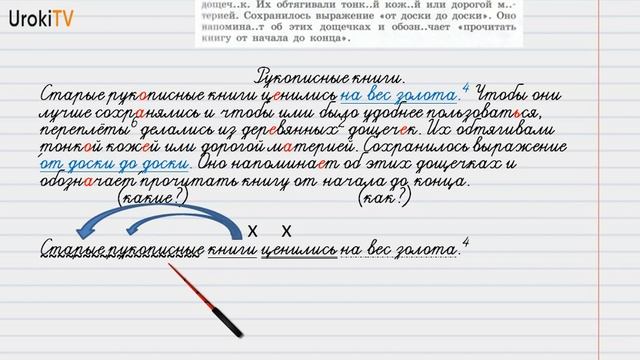 UrokiTV
дощеч..к. Их обтягивали тонк..й кож..й или дорогой м..-
терией. Сохранилось выражение «от доски до доски». Оно
напомина..т об этих дощечках и обозн..чает «прочитать
книгу от начала до конца».
Рукописные книги.
Старые рукописные книги ценились на вес золота.⁴ Чтобы они
лучше сохранялись и чтобы ими было удобнее пользоваться,
переплёты⁶ делались из деревянных дощечек. Их обтягивали
тонкой кожей или дорогой материей. Сохранилось выражение
"от доски до доски. Оно напоминает об этих дощечках и
обозначает "прочитать книгу от начала до конца.
(какие?) (как?)
х х
Старые рукописные книги ценились на вес золота.⁴